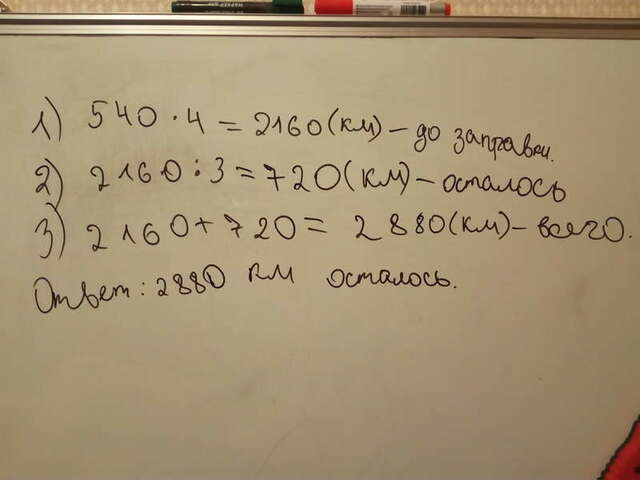 1) 540 · 4 = 2160 (км) – до заправки.
2) 2160 : 3 = 720 (км) – осталось
3) 2160 + 720 = 2880 (км) – всего.
Ответ: 2880 км осталось.